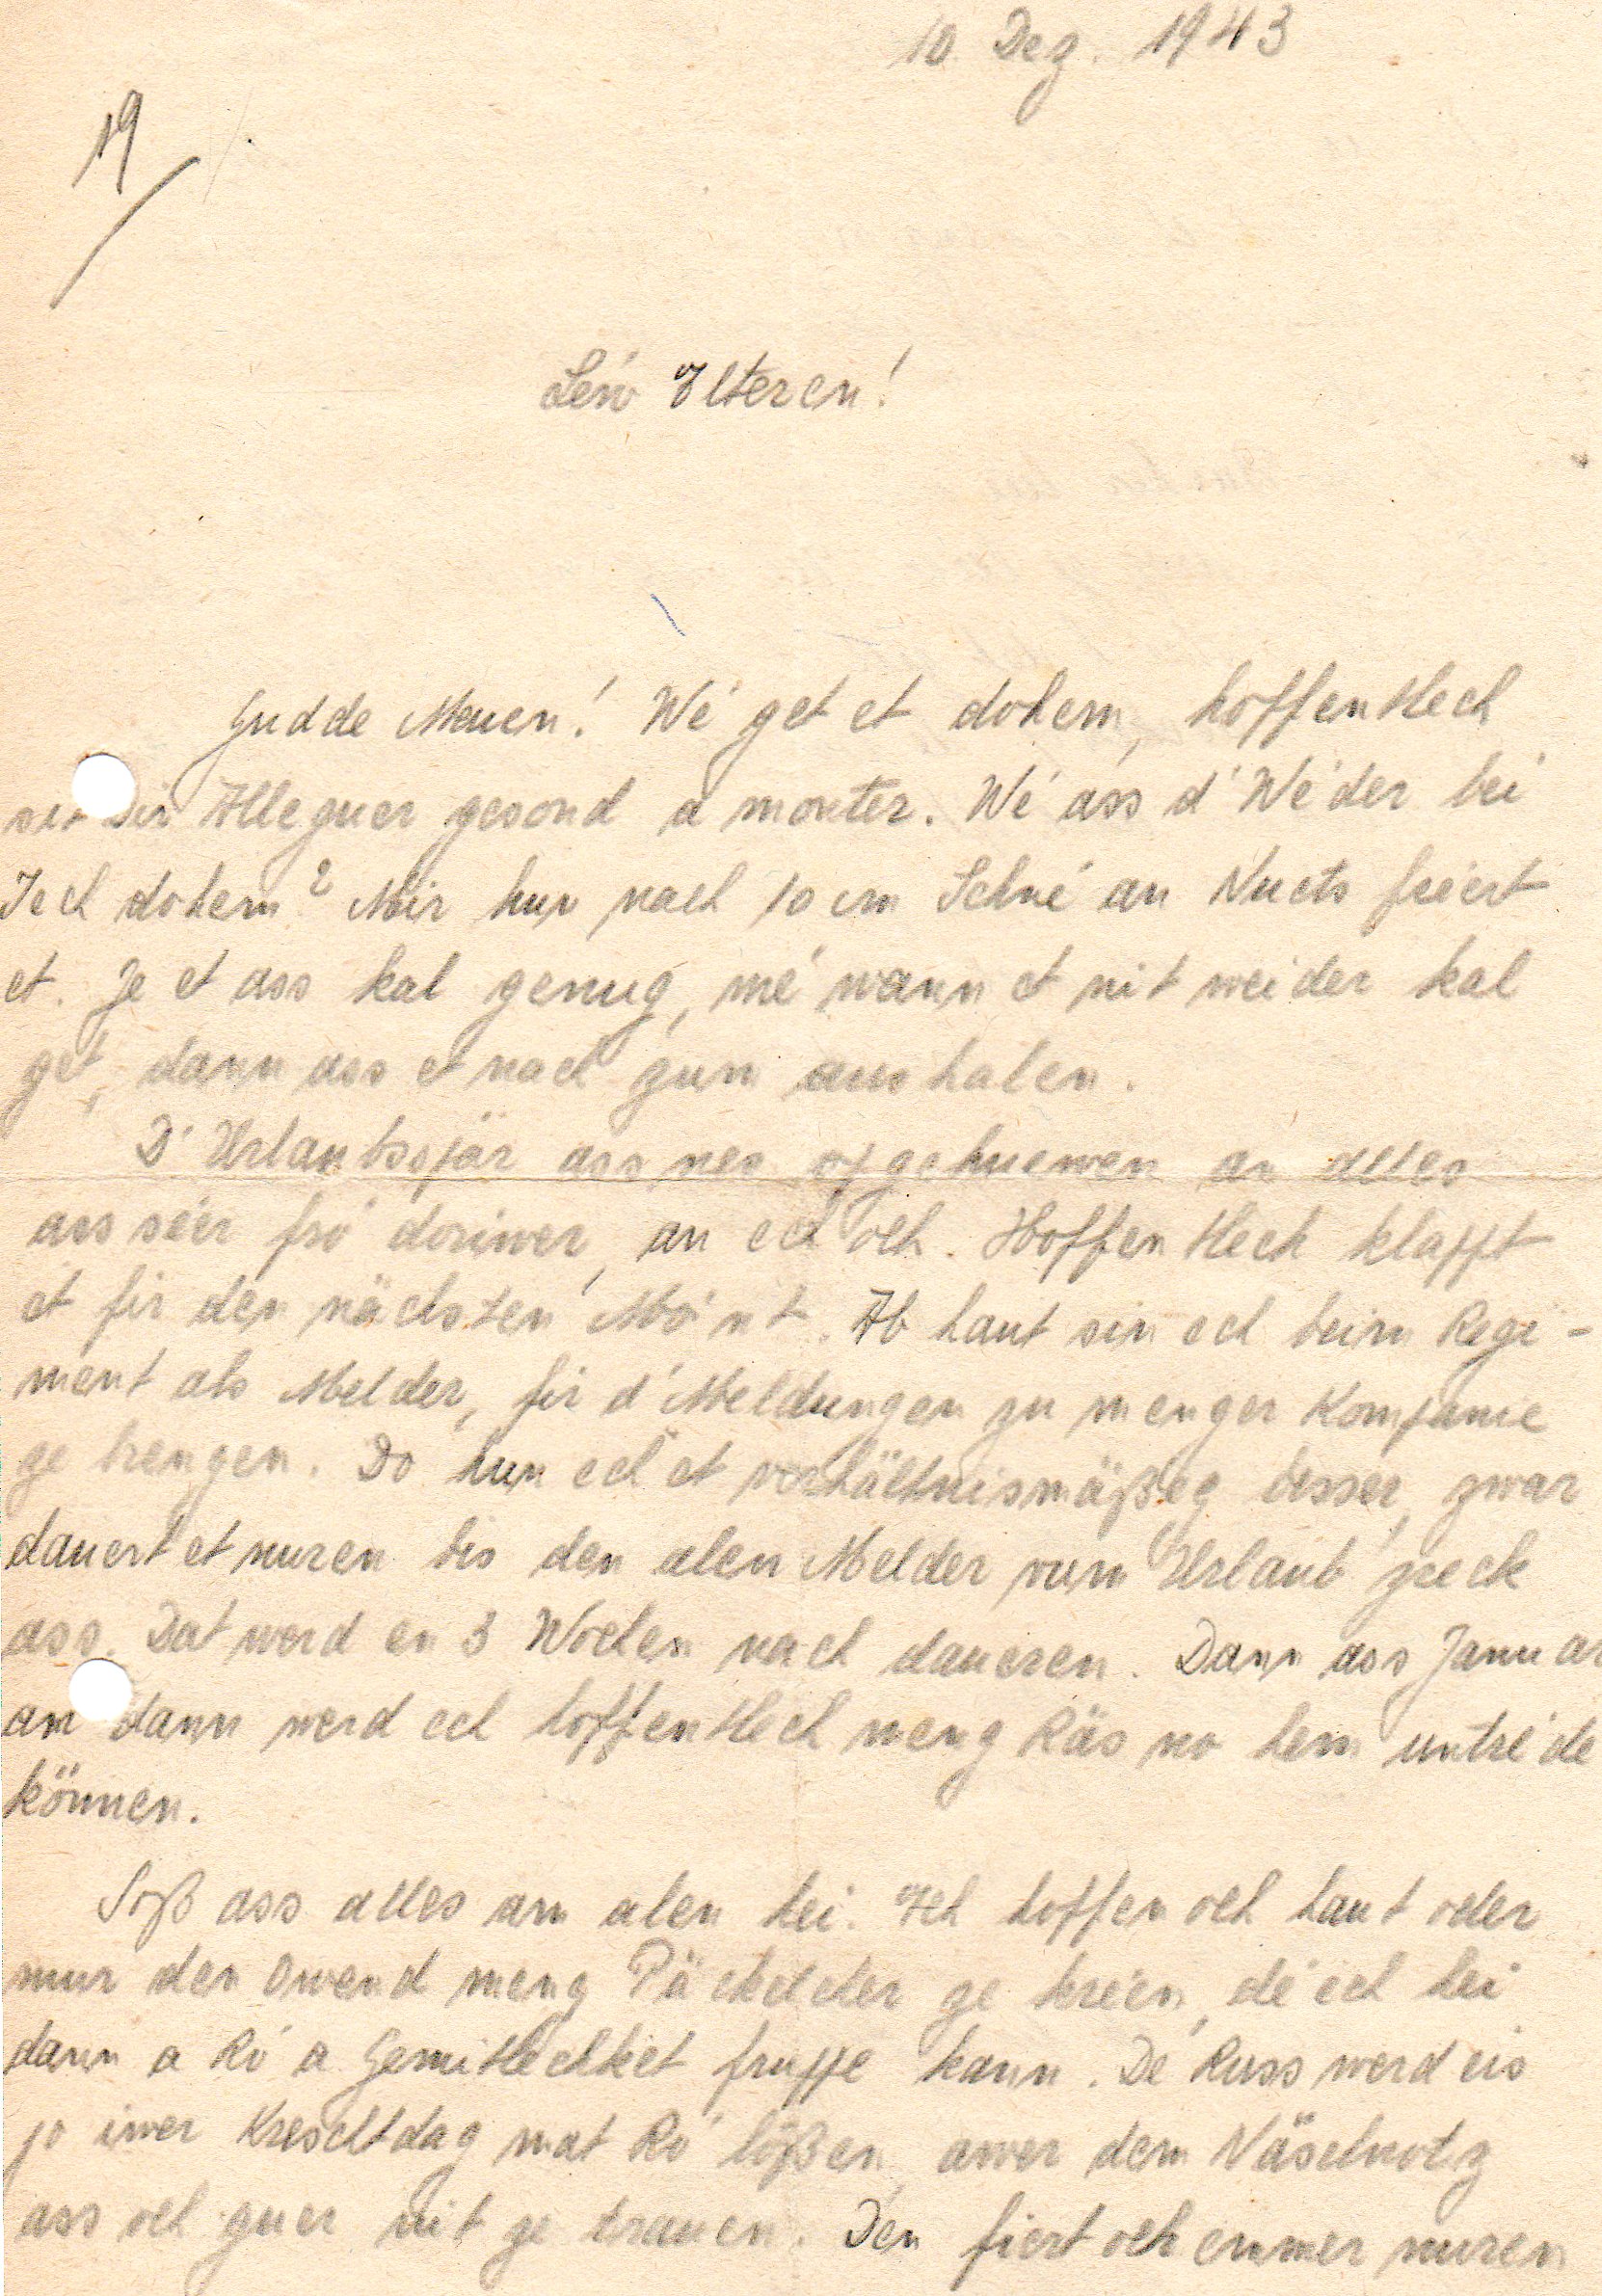 10. Dez. 1943
19
Léiw Elteren!
Gudde Muen! Wé get et dohem, hoffentlech
Dir Alleguer gesond a monter. Wé ass d'Wé'der bei
Iech dohem? Mir hun nach 10 cm Schné an Nuets fréert
et. Je et ass kal genug, mé wann et nit weider kal
get, dann ass et nach zum aushalen.
D'Urlaubsspär ass nes opgehuewen an alles
ass séer fró doriwer, an ech och. Hoffentlech klappt
et fir den nächsten Mo'nt. Ab haut sin ech beim Regi-
ment als Melder, fir d'Meldungen zu menger Kompanie
ze brengen. Do hun ech et verhältnismäßeg besser, zwar
dauert et nuren bis den alen Melder vum Urlaub zreck
ass. Dat werd en 3 Wochen nach daueren. Dann ass Januar
an dann werd ech hoffentlech meng Räs no hem untrie'de
können.
Soß ass alles am alen hei. Ech hoffen och haut oder
mur den Owend meng Päckelcher ze kréien, dé ech hei
dann a Ró a Gemitlechket fruppe kann. De' Russ werd eis
jo iwer Kreschtdag mat Ró lóßen, awer dem Näischnotz
ass och guer nit ze trauen. Den fiert och emmer nuren